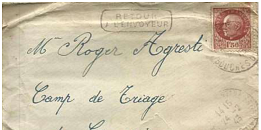 RETOUR
A L'ENVOYEUR
Mr Roger Agresti
Camp de Triage